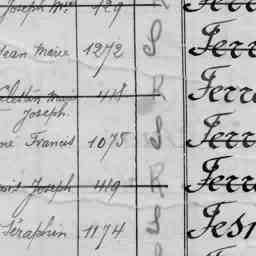 Joseph Mie 129 R Ferr
Jean Marie 1272 S Ferr
Célestin Marie 418 R Ferr
Joseph.
né Francis 1075 S Ferr
Joseph 419 R Ferra
Séraphin 1174 S Fesn